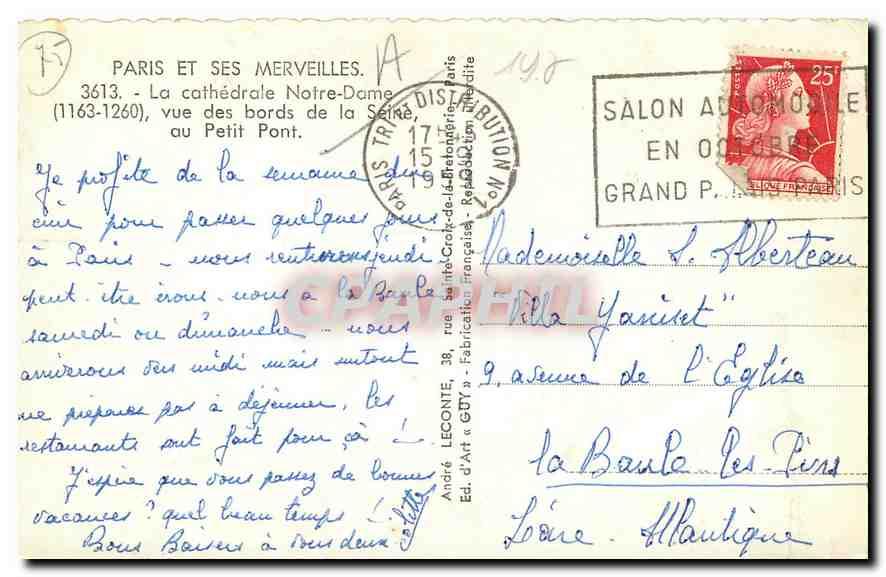 PARIS ET SES MERVEILLES.
3613. - La cathédrale Notre-Dame
(1163-1260), vue des bords de la Seine,
au Petit Pont.
Je profite de la semaine du
pour passer quelques jours
à Paris - nous rentrerons jeudi
peut-être irons-nous à la Baule
samedi ou dimanche - nous
arriverons vers midi mais surtout
ne préparez pas à déjeuner, les
restaurants sont fait pour çà !
J'espère que vous passez de bonnes
vacances ? quel beau temps !
Bons Baisers à vous deux
Colette
André LECONTE, 38, rue Sainte-Croix-de-la-Bretonnerie, Paris
Ed. d'Art « GUY » - Fabrication Française - Reproduction interdite
PARIS TRI ET DISTRIBUTION N°1
17
15
19
SALON AUTOMOBILE
EN OCTOBRE
GRAND P. PARIS
POSTES
25F
CPARAMA
Mademoiselle S. Alberteau
"Villa Yaniset"
9, avenue de l'Eglise
la Baule les-Pins
Loire-Atlantique